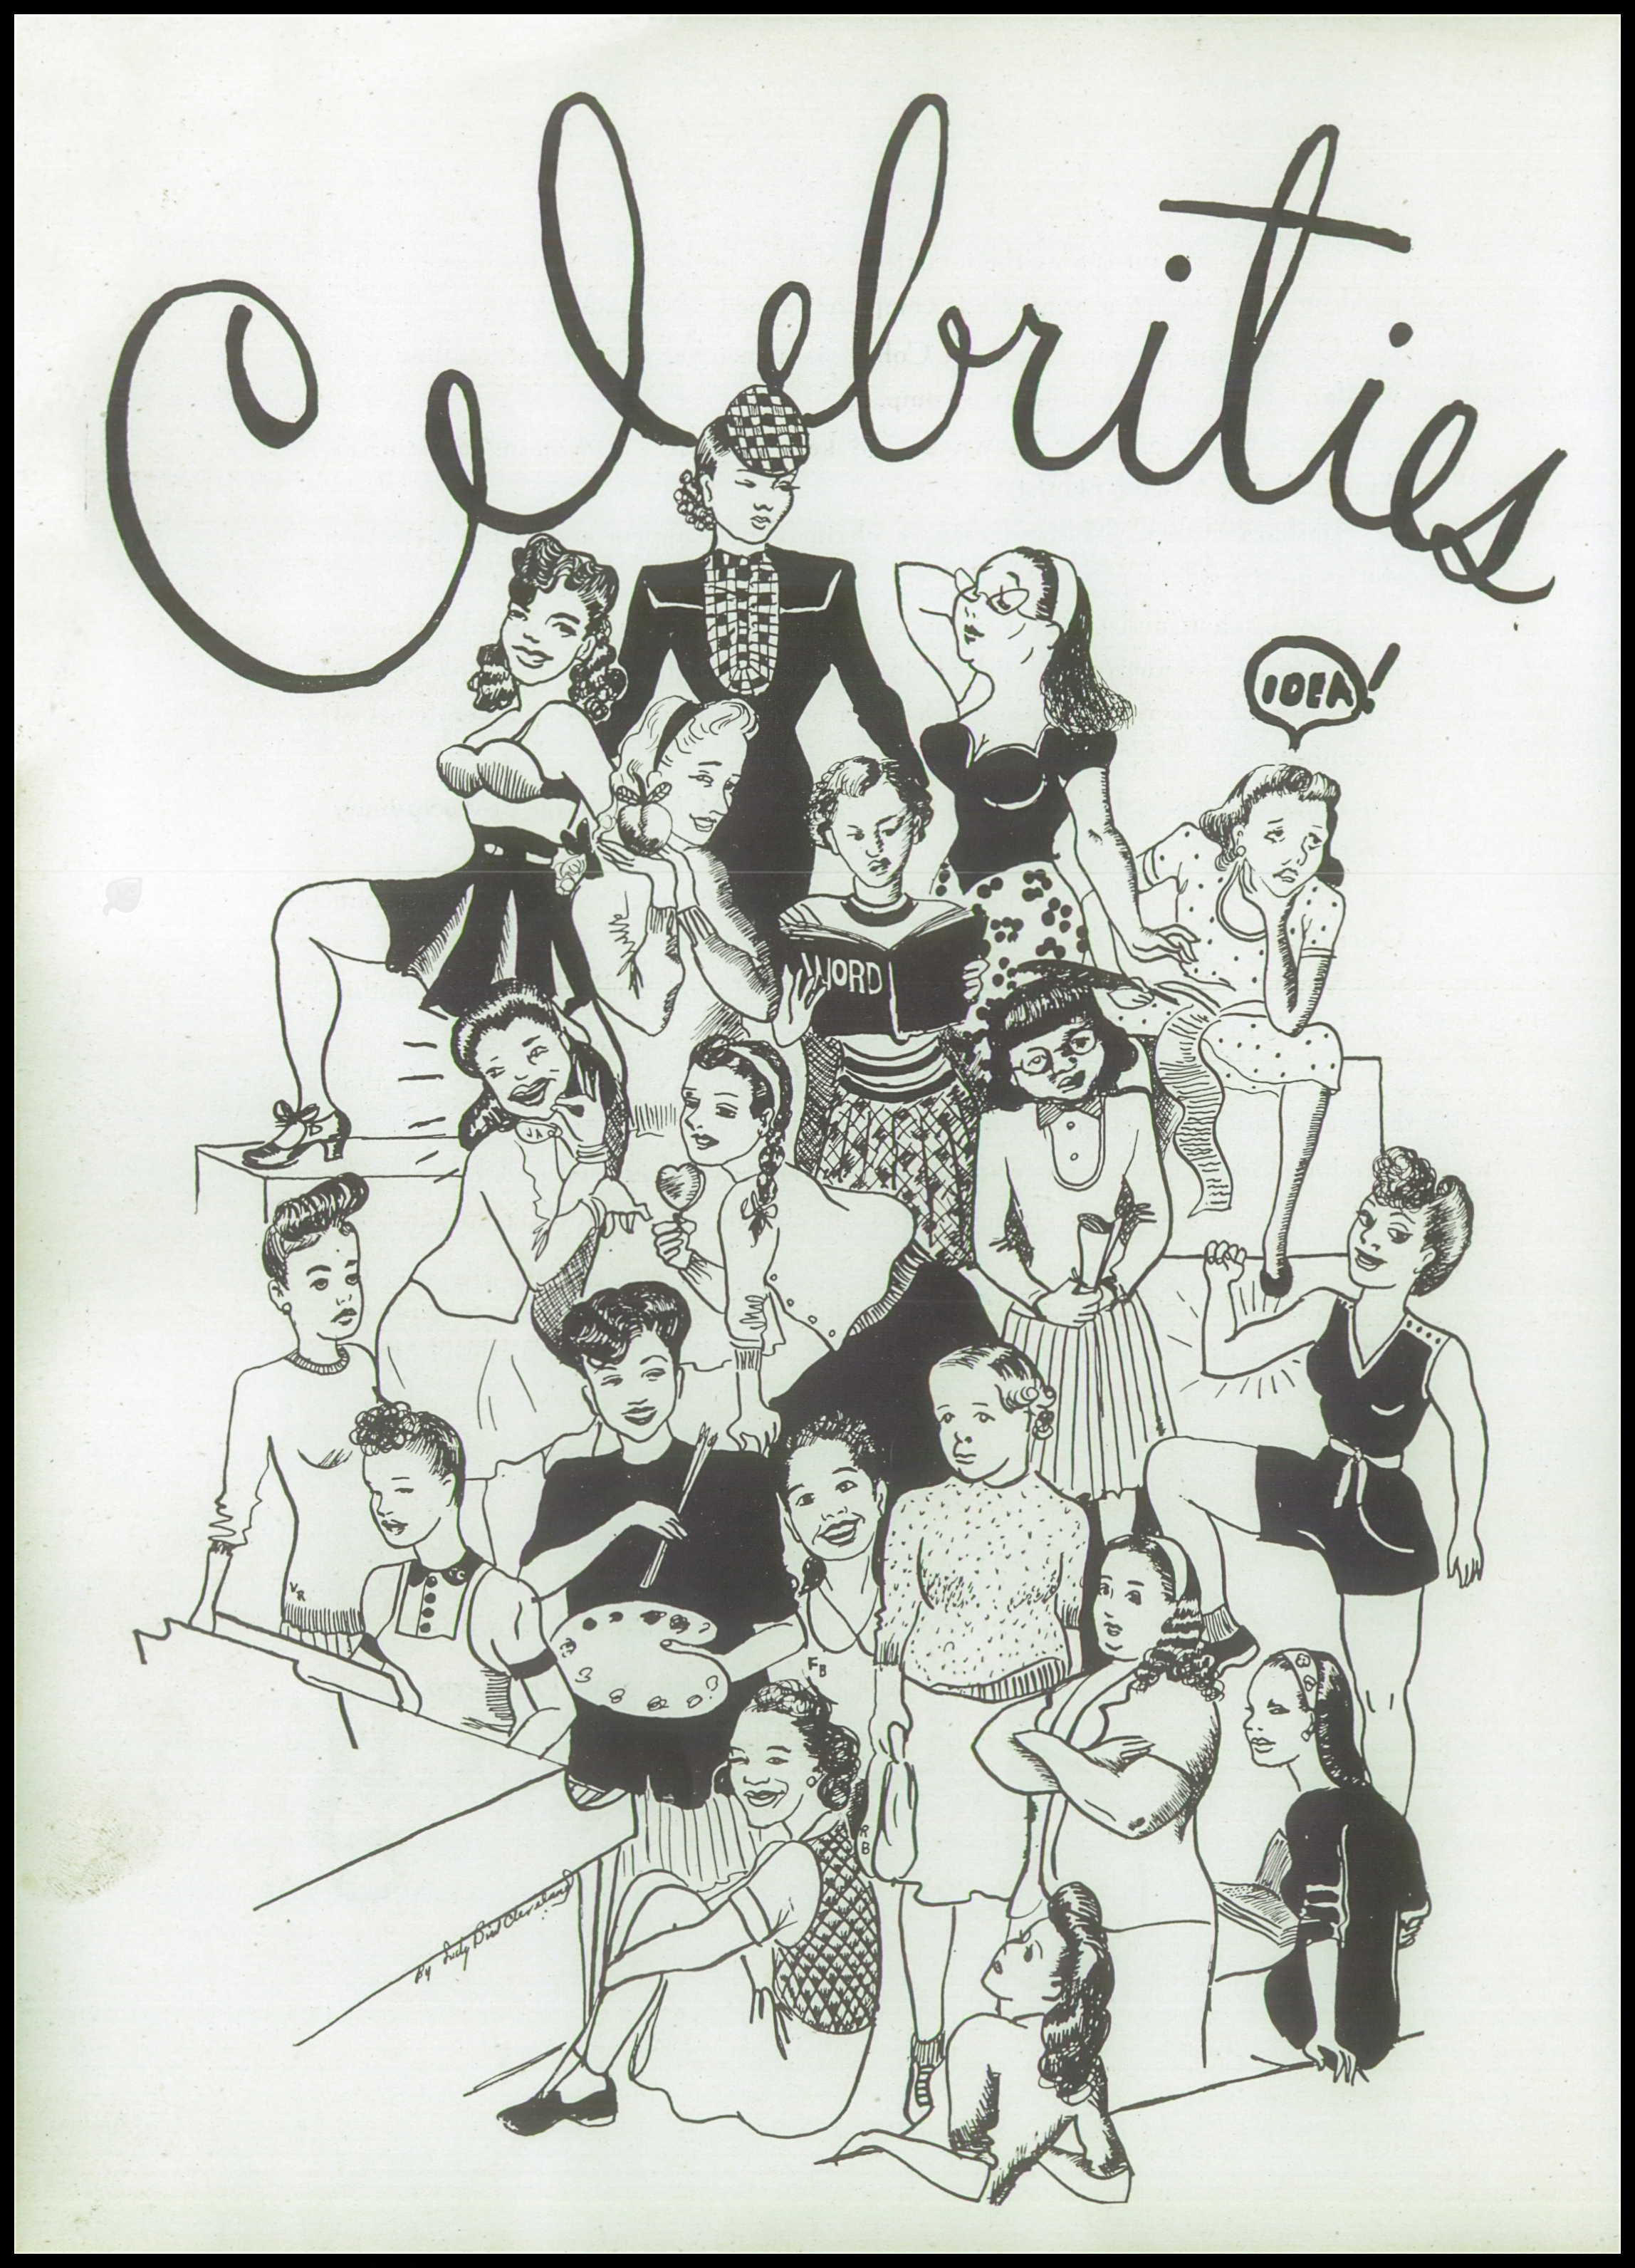 Celebrities
IDEA!
WORD
JA
VR
FB
RB
By Judy Bird Cleveland